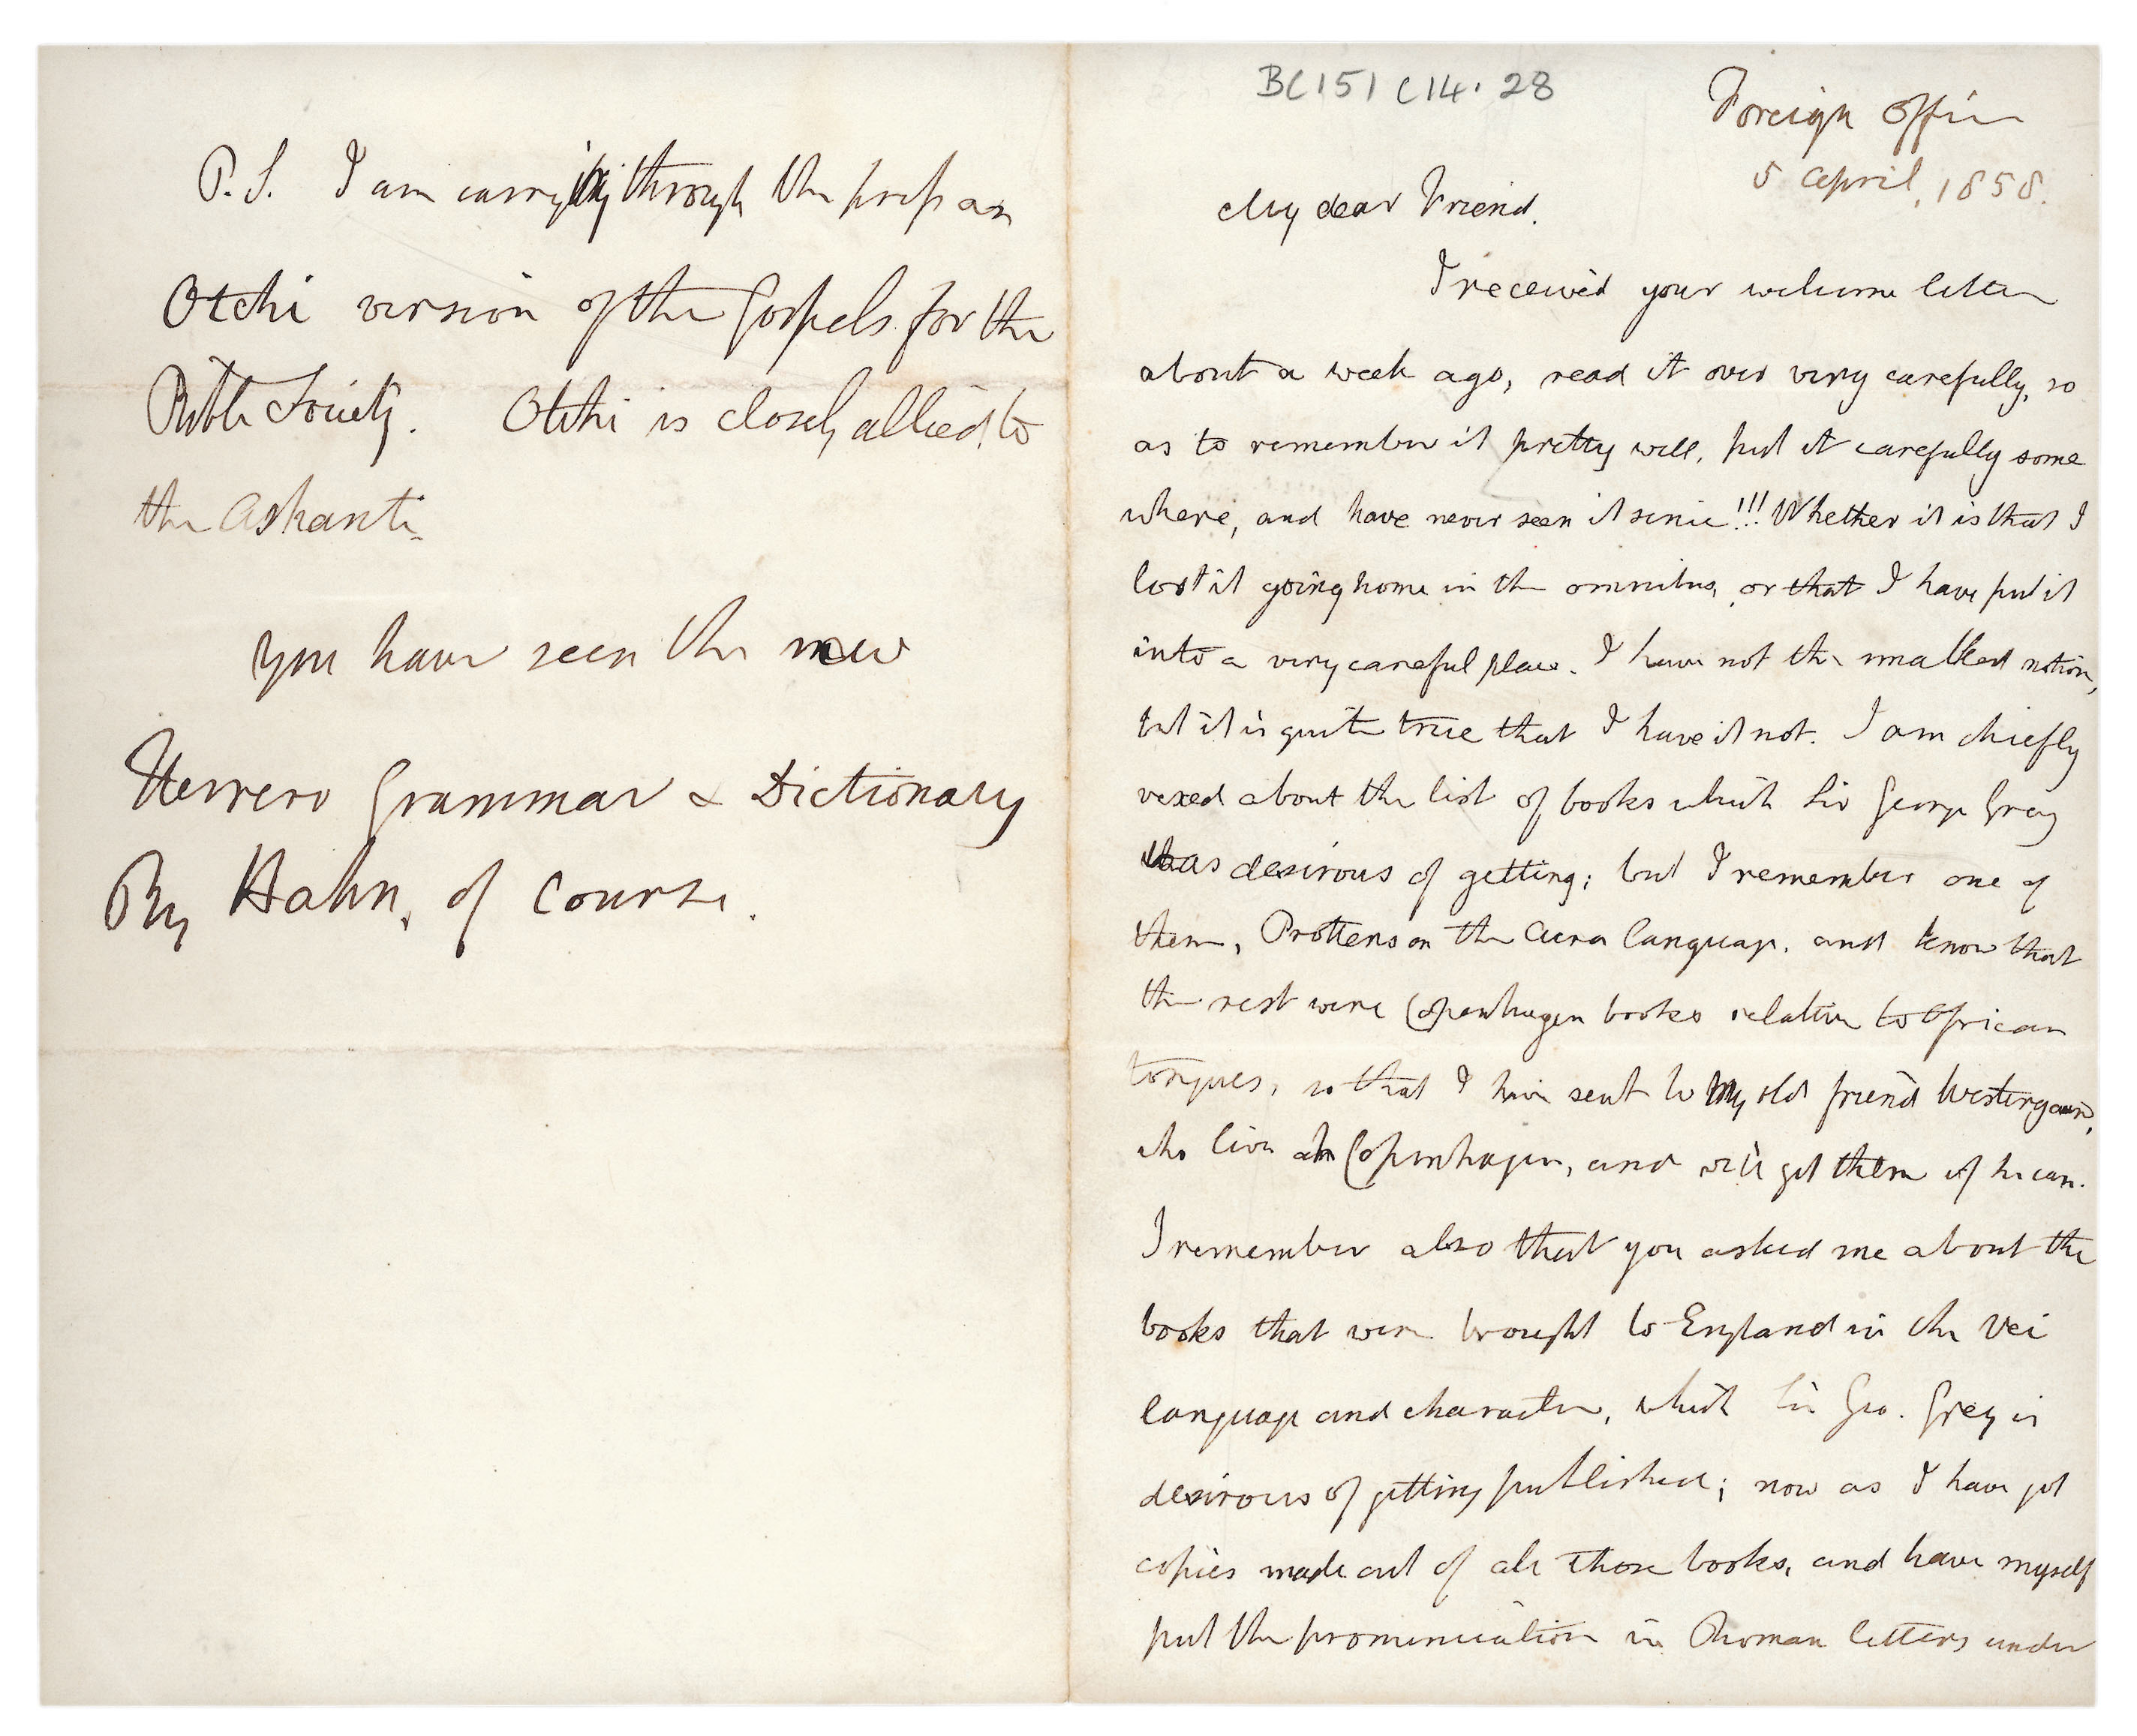 P.S. I am carrying through the press an
Otchi version of the Gospels for the
Bible Society. Otchi is closely allied to
the Ashanti.
You have seen the new
Herrero Grammar & Dictionary
By Hahn, of course.
BC151 C14.28
Foreign Office
5 April, 1858.
My dear Friend.
I received your welcome letter
about a week ago, read it over very carefully, so
as to remember it pretty well, put it carefully some
where, and have never seen it since!!! Whether it is that I
lost it going home in the omnibus, or that I have put it
into a very careful place. I have not the smallest notion,
but it is quite true that I have it not. I am chiefly
vexed about the list of books which Sir George Grey
was desirous of getting; but I remember one of
them, Protten on the Accra language, and know that
the rest were Copenhagen books relative to African
tongues, so that I have sent to my old friend Westergaard,
who live at Copenhagen, and will get them if he can.
I remember also that you asked me about the
books that were brought to England in the Vei
language and character, which Sir Geo. Grey is
desirous of getting published; now as I have got
copies made out of all those books, and have myself
put the pronunciation in Roman letters under